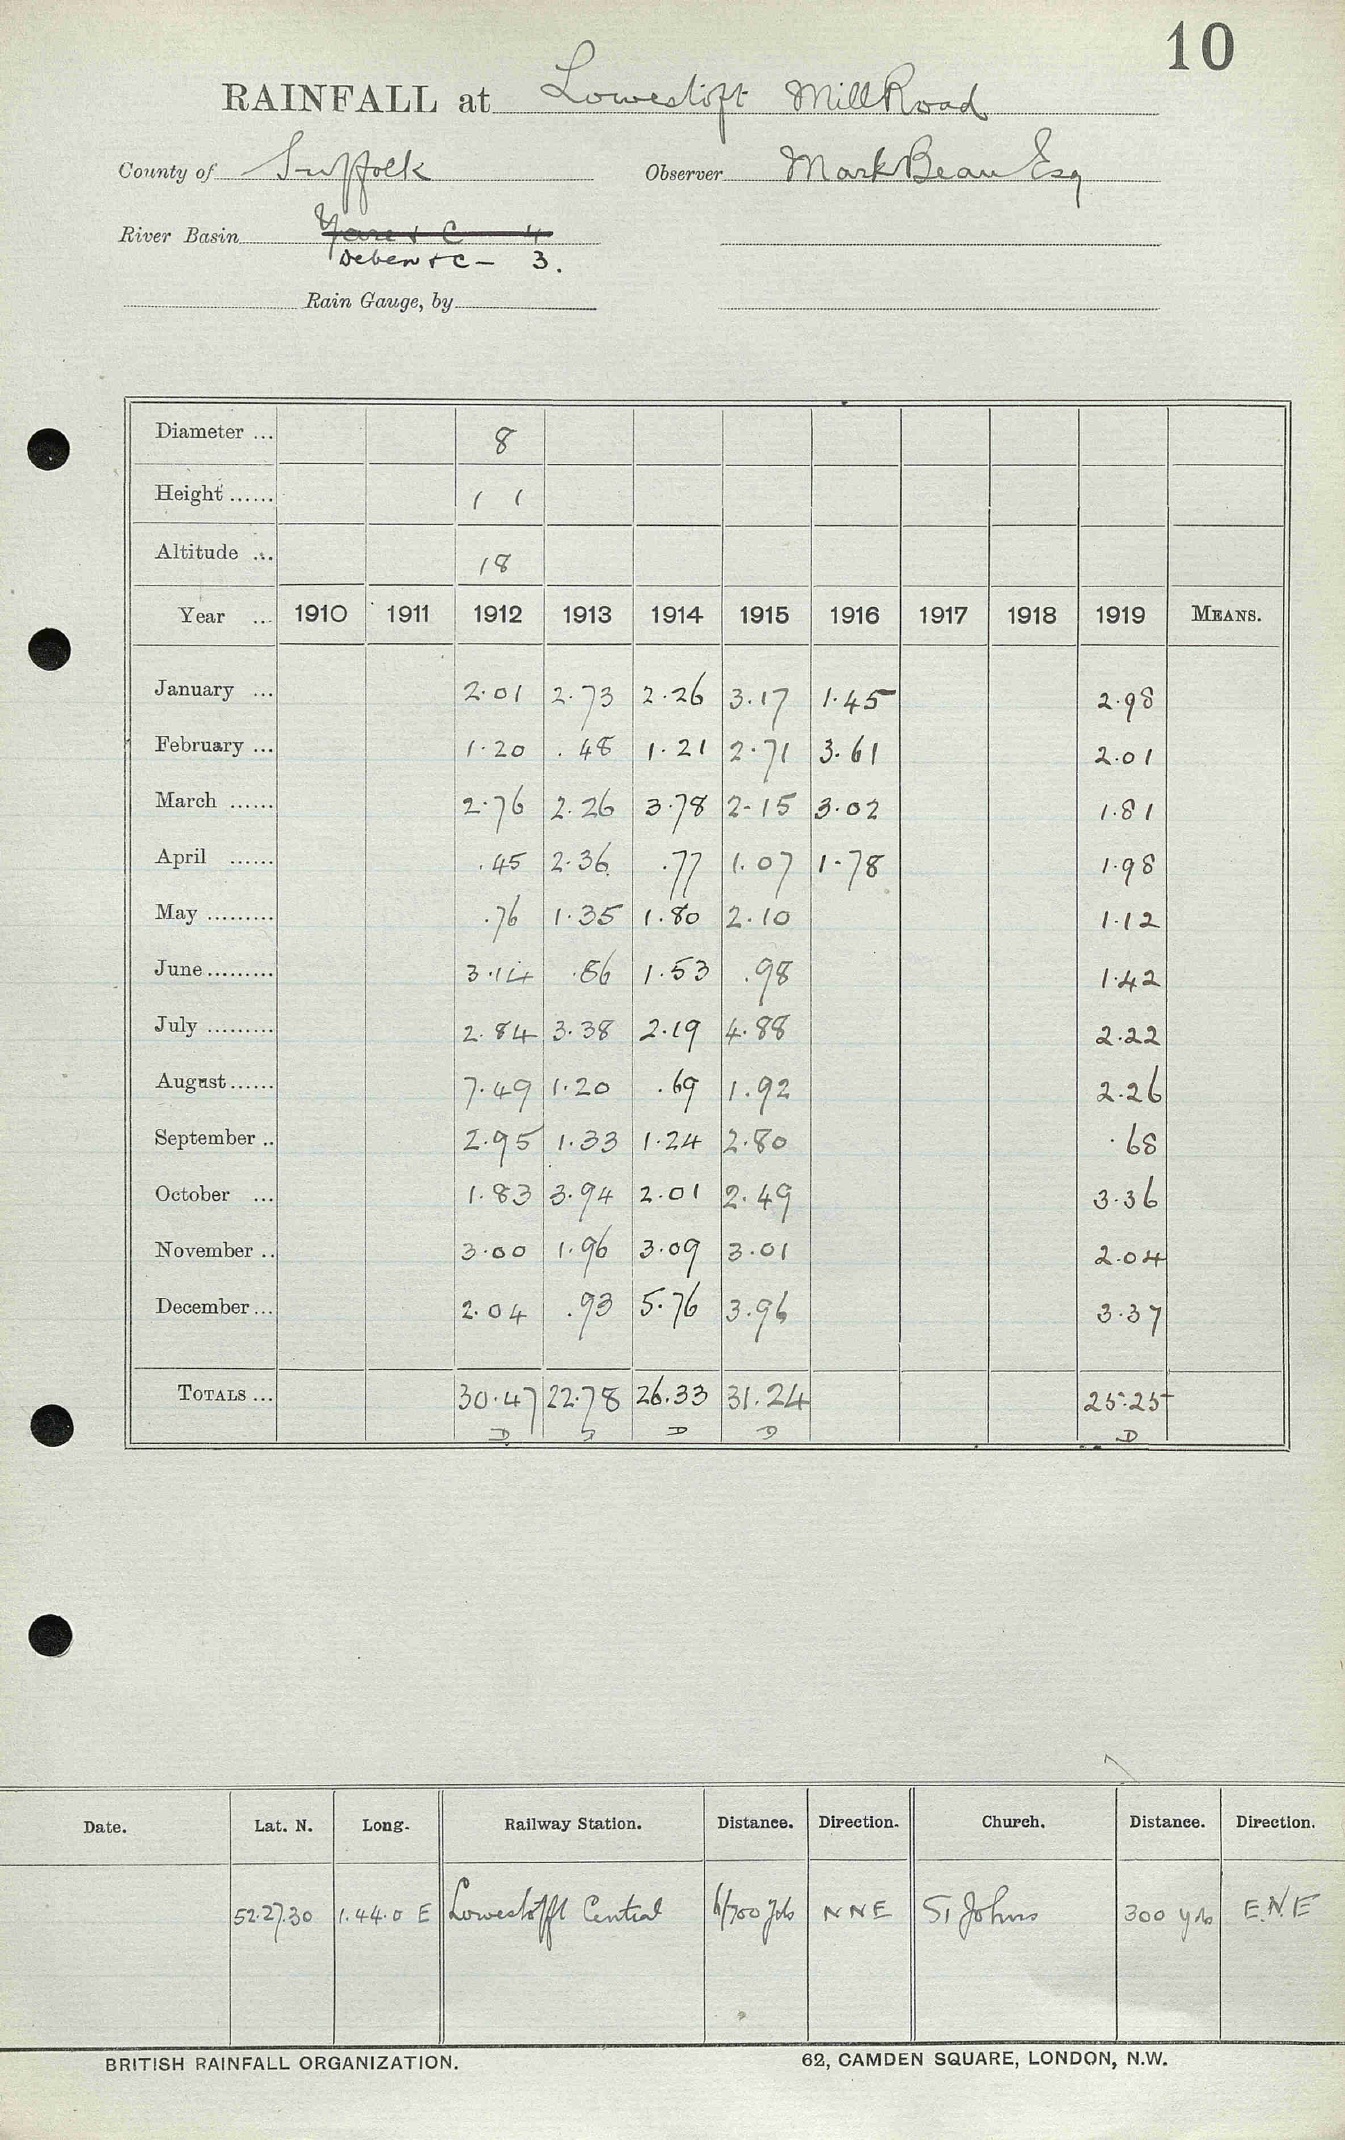 10
RAINFALL at Lowestoft Mill Road
County of Suffolk Observer Mark Bean Esq
River Basin Yare & C 4
Deben & C – 3.
Rain Gauge, by
Diameter ... 8
Height ...... 1 1
Altitude ... 18
Year ... 1910 1911 1912 1913 1914 1915 1916 1917 1918 1919 MEANS.
January ... 2.01 2.73 2.26 3.17 1.45 2.98
February ... 1.20 .48 1.21 2.71 3.61 2.01
March ...... 2.76 2.26 3.78 2.15 3.02 1.81
April ...... .45 2.36 .77 1.07 1.78 1.98
May ......... .76 1.35 1.80 2.10 1.12
June ......... 3.14 .86 1.53 .98 1.42
July ......... 2.84 3.38 2.19 4.88 2.22
August ...... 7.49 1.20 .69 1.92 2.26
September .. 2.95 1.33 1.24 2.80 .68
October ... 1.83 3.94 2.01 2.49 3.36
November .. 3.00 1.96 3.09 3.01 2.04
December ... 2.04 .93 5.76 3.96 3.37
TOTALS ... 30.47 22.78 26.33 31.24 25.25
D D D D
Date. Lat. N. Long. Railway Station. Distance. Direction. Church. Distance. Direction.
52.27.30 1.44.0 E Lowestofft Central 700 yds NNE St Johns 300 yds E.N.E
BRITISH RAINFALL ORGANIZATION. 62, CAMDEN SQUARE, LONDON, N.W.